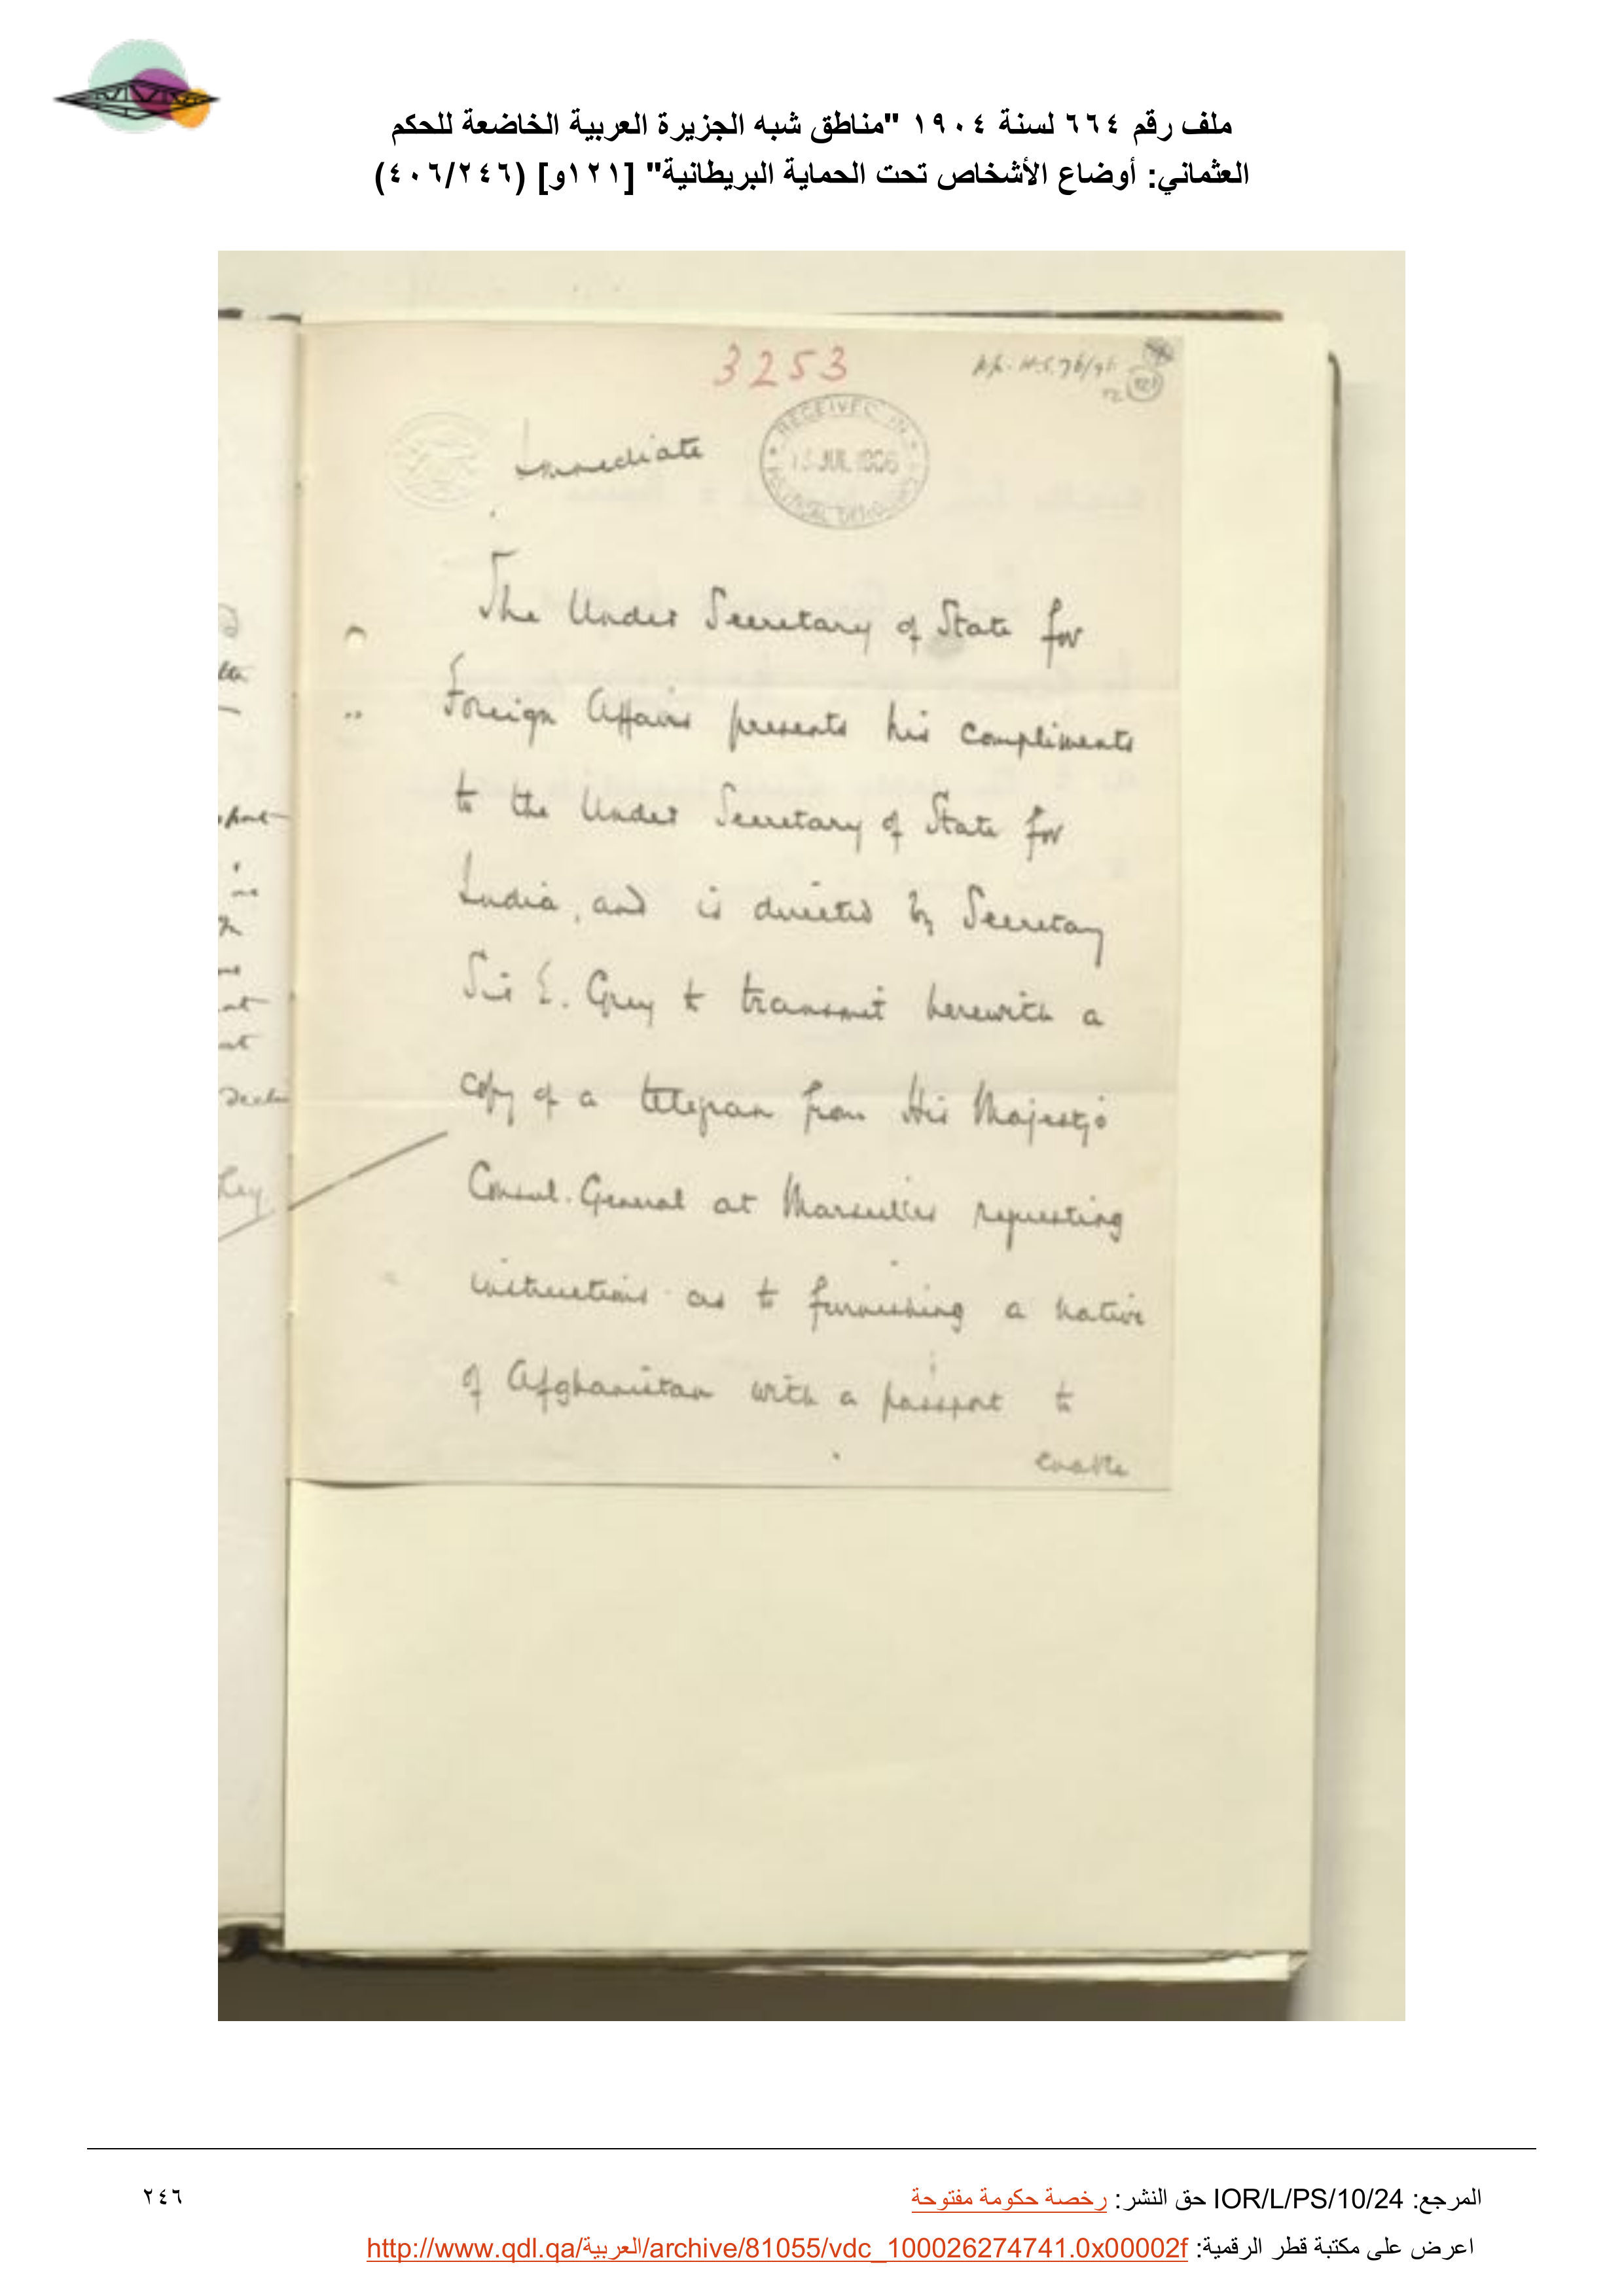 ملف رقم ٦٦٤ لسنة ١٩٠٤ "مناطق شبه الجزيرة العربية الخاضعة للحكم
العثماني: أوضاع الأشخاص تحت الحماية البريطانية" [١٢١و] (٤٠٦/٢٤٦)
3253
Immediate
RECEIVED IN
JUL 1906
The Under Secretary of State for
Foreign Affairs presents his compliments
to the Under Secretary of State for
India, and is directed by Secretary
Sir E. Grey to transmit herewith a
copy of a telegram from His Majesty's
Consul-General at Marseilles requesting
instructions as to furnishing a native
of Afghanistan with a passport to
enable
المرجع: IOR/L/PS/10/24 حق النشر: رخصة حكومة مفتوحة
٢٤٦
اعرض على مكتبة قطر الرقمية: http://www.qdl.qa/العربية/archive/81055/vdc_100026274741.0x00002f